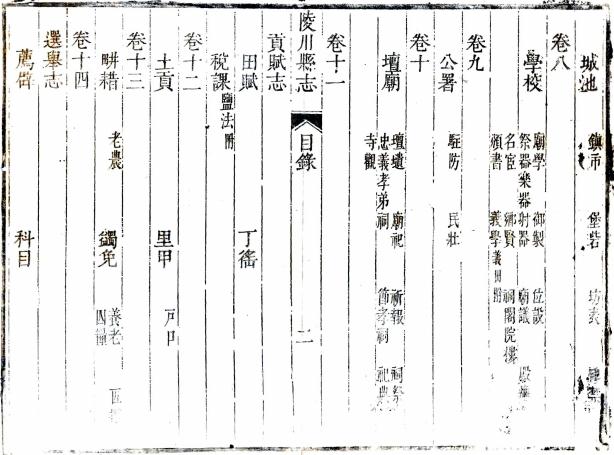 城池 鎮市 堡砦 坊表
卷八
學校 廟學 御製 位設
祭器樂器射器 廟議
名宦 鄉賢 祠閣院樓
頒書 義學義田附
卷九
公署 駐防 民壯
卷十
壇廟 壇壝 廟祀 祈報 祠祭
忠義孝弟祠 節孝祠 祀典
寺觀
卷十一
陵川縣志 目錄 二
貢賦志
田賦 丁徭
稅課鹽法附
卷十二
土貢 里甲 戶口
卷十三
耕耤 老農 蠲免 養老
選舉志
卷十四
薦辟 科目